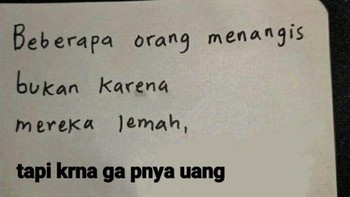 Beberapa orang menangis
bukan karena
mereka lemah,
tapi krna ga pnya uang